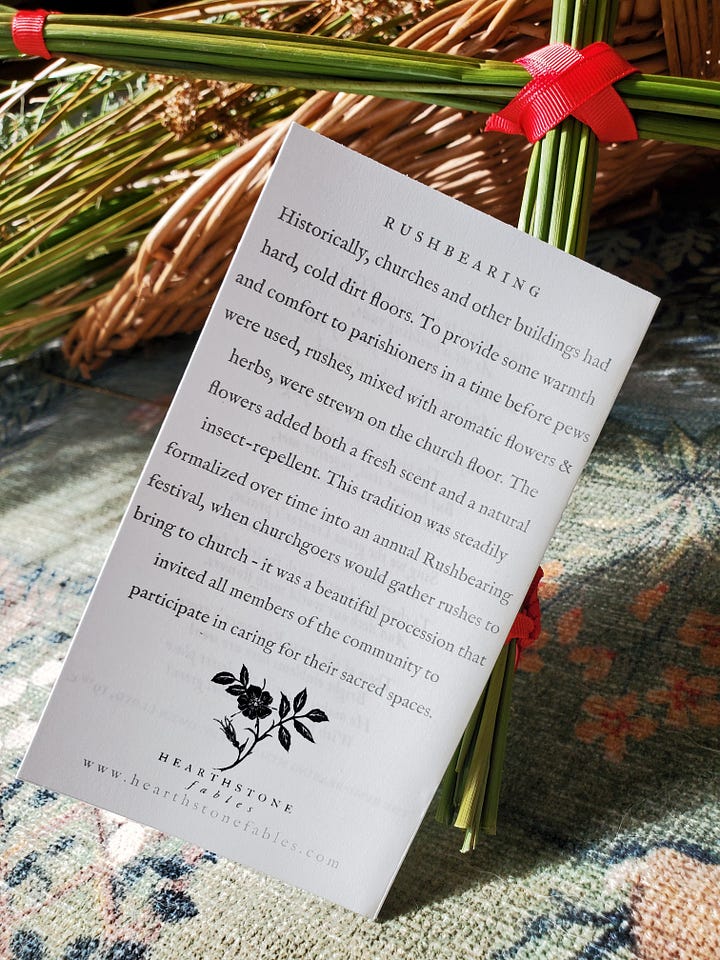 RUSHBEARING
Historically, churches and other buildings had
hard, cold dirt floors. To provide some warmth
and comfort to parishioners in a time before pews
were used, rushes, mixed with aromatic flowers &
herbs, were strewn on the church floor. The
flowers added both a fresh scent and a natural
insect-repellent. This tradition was steadily
formalized over time into an annual Rushbearing
festival, when churchgoers would gather rushes to
bring to church - it was a beautiful procession that
invited all members of the community to
participate in caring for their sacred spaces.
HEARTHSTONE
fables
www.hearthstonefables.com